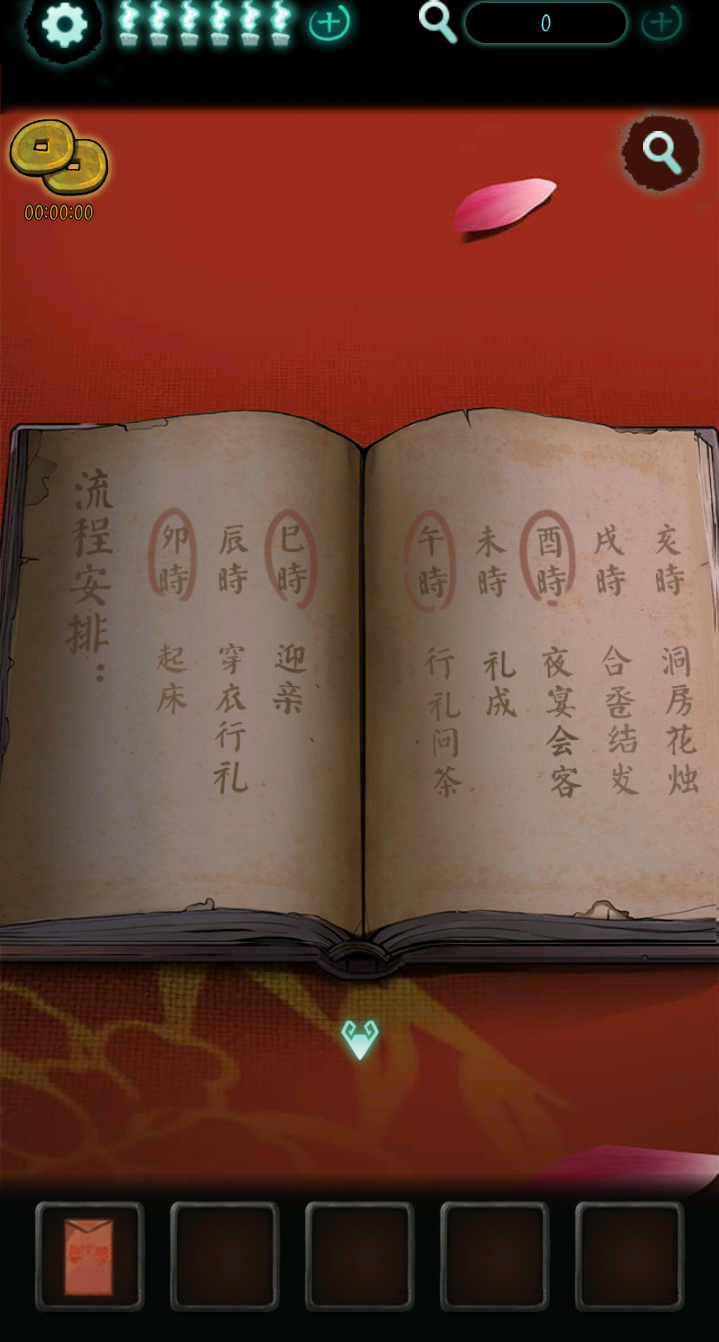 0
00:00:00
流程安排：
卯時 起床
辰時 穿衣行礼
巳時 迎亲
午時 行礼问茶
未時 礼成
酉時 夜宴会客
戌時 合卺结发
亥時 洞房花烛